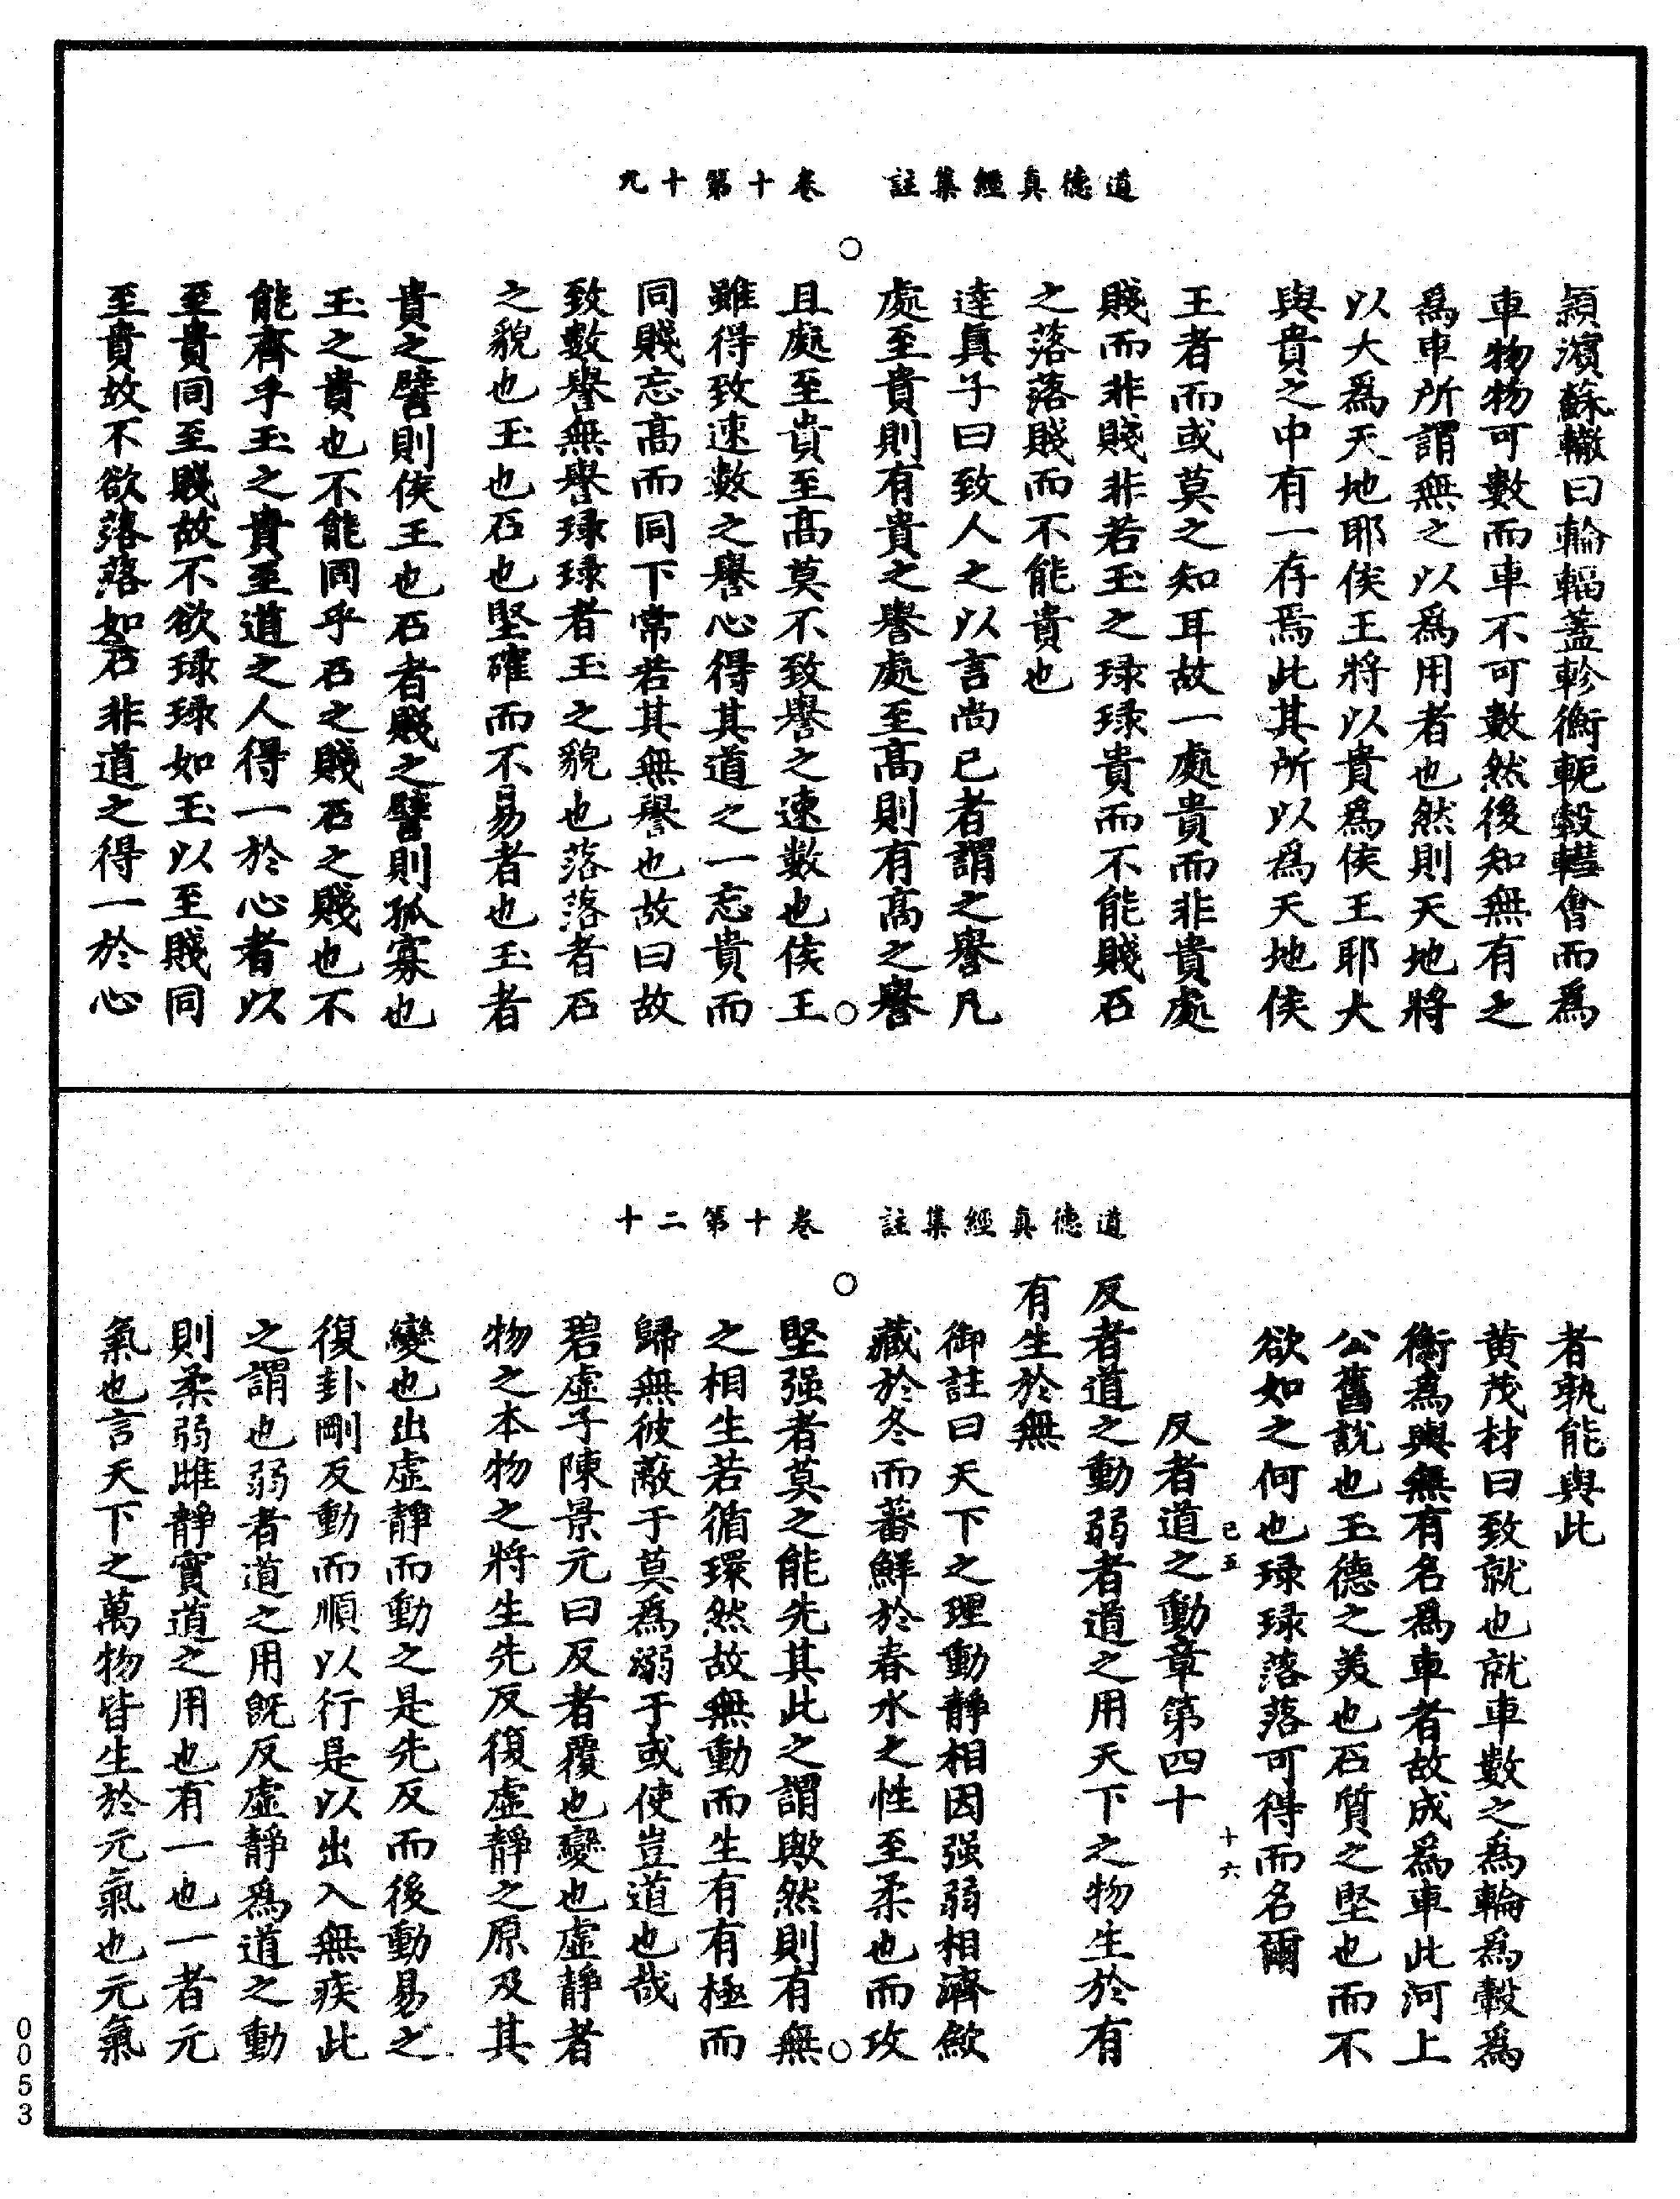 道德真經集註 卷十第十九
頴濱蘇轍曰輪輻蓋軫衡軛轂轊會而爲
車物物可數而車不可數然後知無有之
爲車所謂無之以爲用者也然則天地將
以大爲天地耶侯王將以貴爲侯王耶大
與貴之中有一存焉此其所以爲天地侯
王者而或莫之知耳故一處貴而非貴處
賤而非賤非若玉之琭琭貴而不能賤石
之落落賤而不能貴也
達真子曰致人之以言尚已者謂之譽凡
處至貴則有貴之譽處至高則有高之譽
且處至貴至高莫不致譽之速數也侯王
雖得致速數之譽心得其道之一忘貴而
同賤忘高而同下常若其無譽也故曰故
致數譽無譽琭琭者玉之貌也落落者石
之貌也玉也石也堅確而不易者也玉者
貴之譬則侯王也石者賤之譬則孤寡也
玉之貴也不能同乎石之賤石之賤也不
能齊乎玉之貴至道之人得一於心者以
至貴同至賤故不欲琭琭如玉以至賤同
至貴故不欲落落如石非道之得一於心
道德真經集註 卷十第二十
者孰能與此
黄茂材曰致就也就車數之爲輪爲轂爲
衡爲輿無有名爲車者故成爲車此河上
公舊説也玉德之美也石質之堅也而不
欲如之何也琭琭落落可得而名爾
己五 十六
反者道之動章第四十
反者道之動弱者道之用天下之物生於有
有生於無
御註曰天下之理動靜相因强弱相濟歛
藏於冬而蕃鮮於春水之性至柔也而攻
堅强者莫之能先其此之謂歟然則有無
之相生若循環然故無動而生有有極而
歸無彼蔽于莫爲溺于或使豈道也哉
碧虛子陳景元曰反者覆也變也虛靜者
物之本物之將生先反復虛靜之原及其
變也出虛靜而動之是先反而後動易之
復卦剛反動而順以行是以出入無疾此
之謂也弱者道之用旣反虛靜爲道之動
則柔弱雌靜實道之用也有一也一者元
氣也言天下之萬物皆生於元氣也元氣
0053